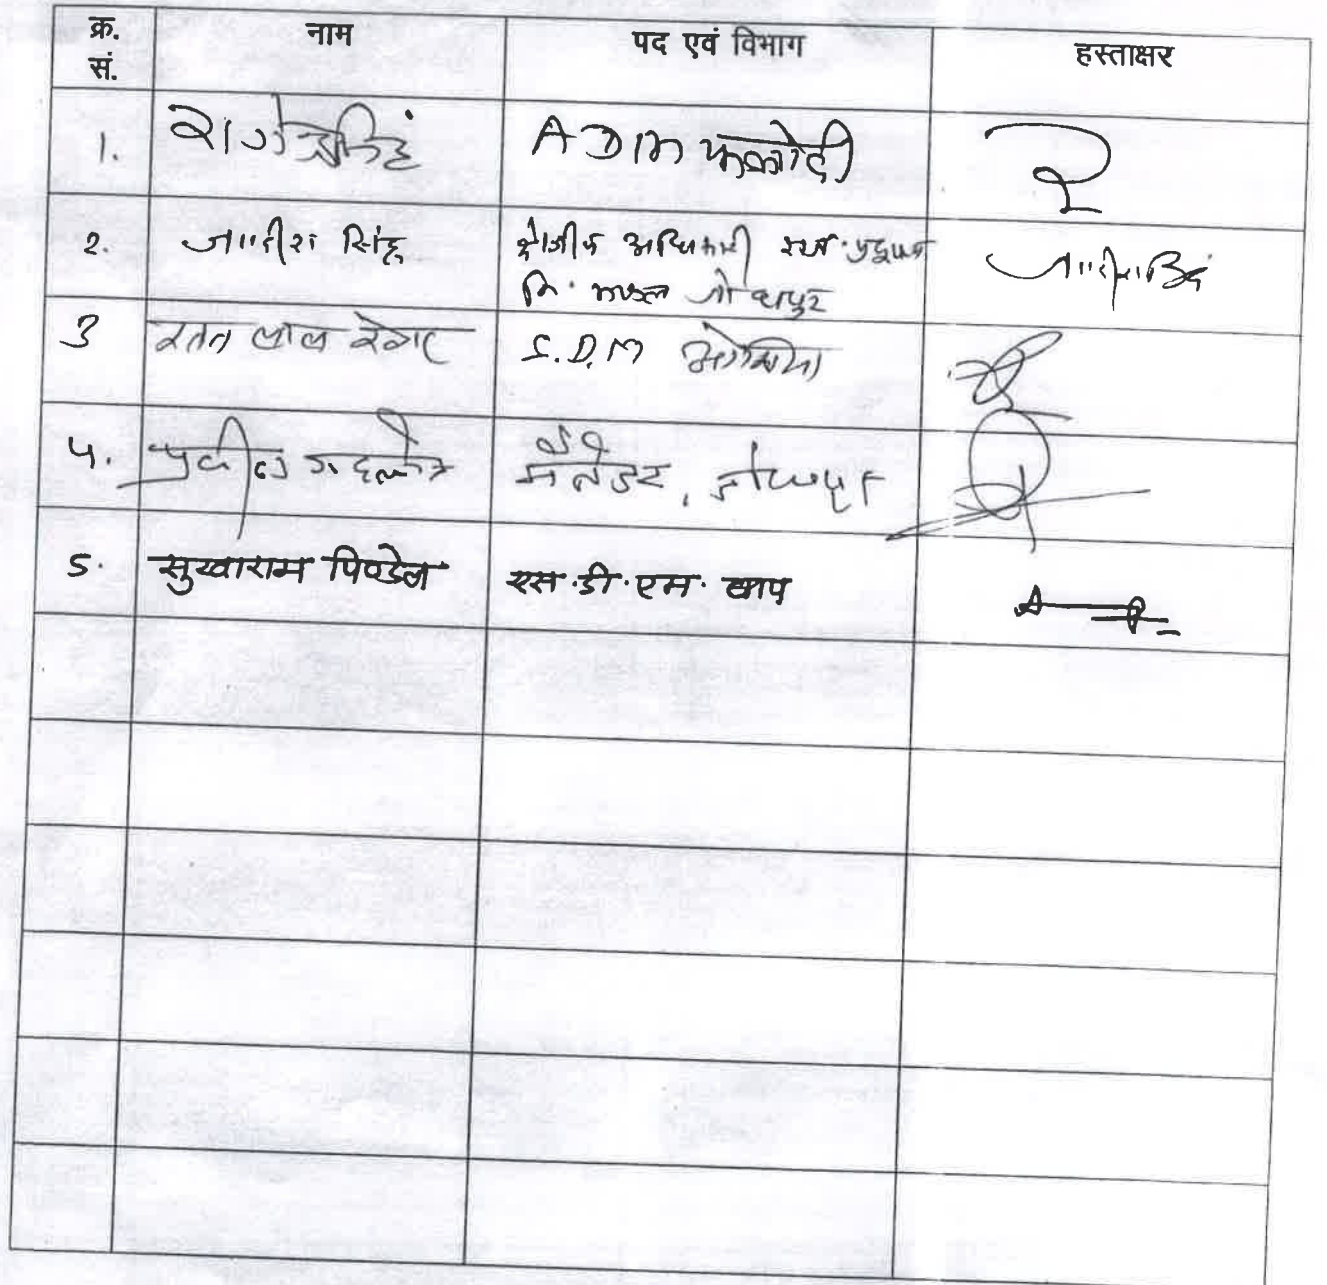 क्र. सं. नाम पद एवं विभाग हस्ताक्षर
1. राजेन्द्रसिंह ADM फलोदी
2. जगदीश सिंह क्षेत्रीय अधिकारी राज. प्रदूषण
नि. मण्डल जोधपुर जगदीशसिंह
3 रतन लाल रेगर S.D.M ओसिया
4. प्रवीण गहलोत मैनेजर, जोधपुर
5. सुखाराम पिण्डेल एस.डी.एम. बाप